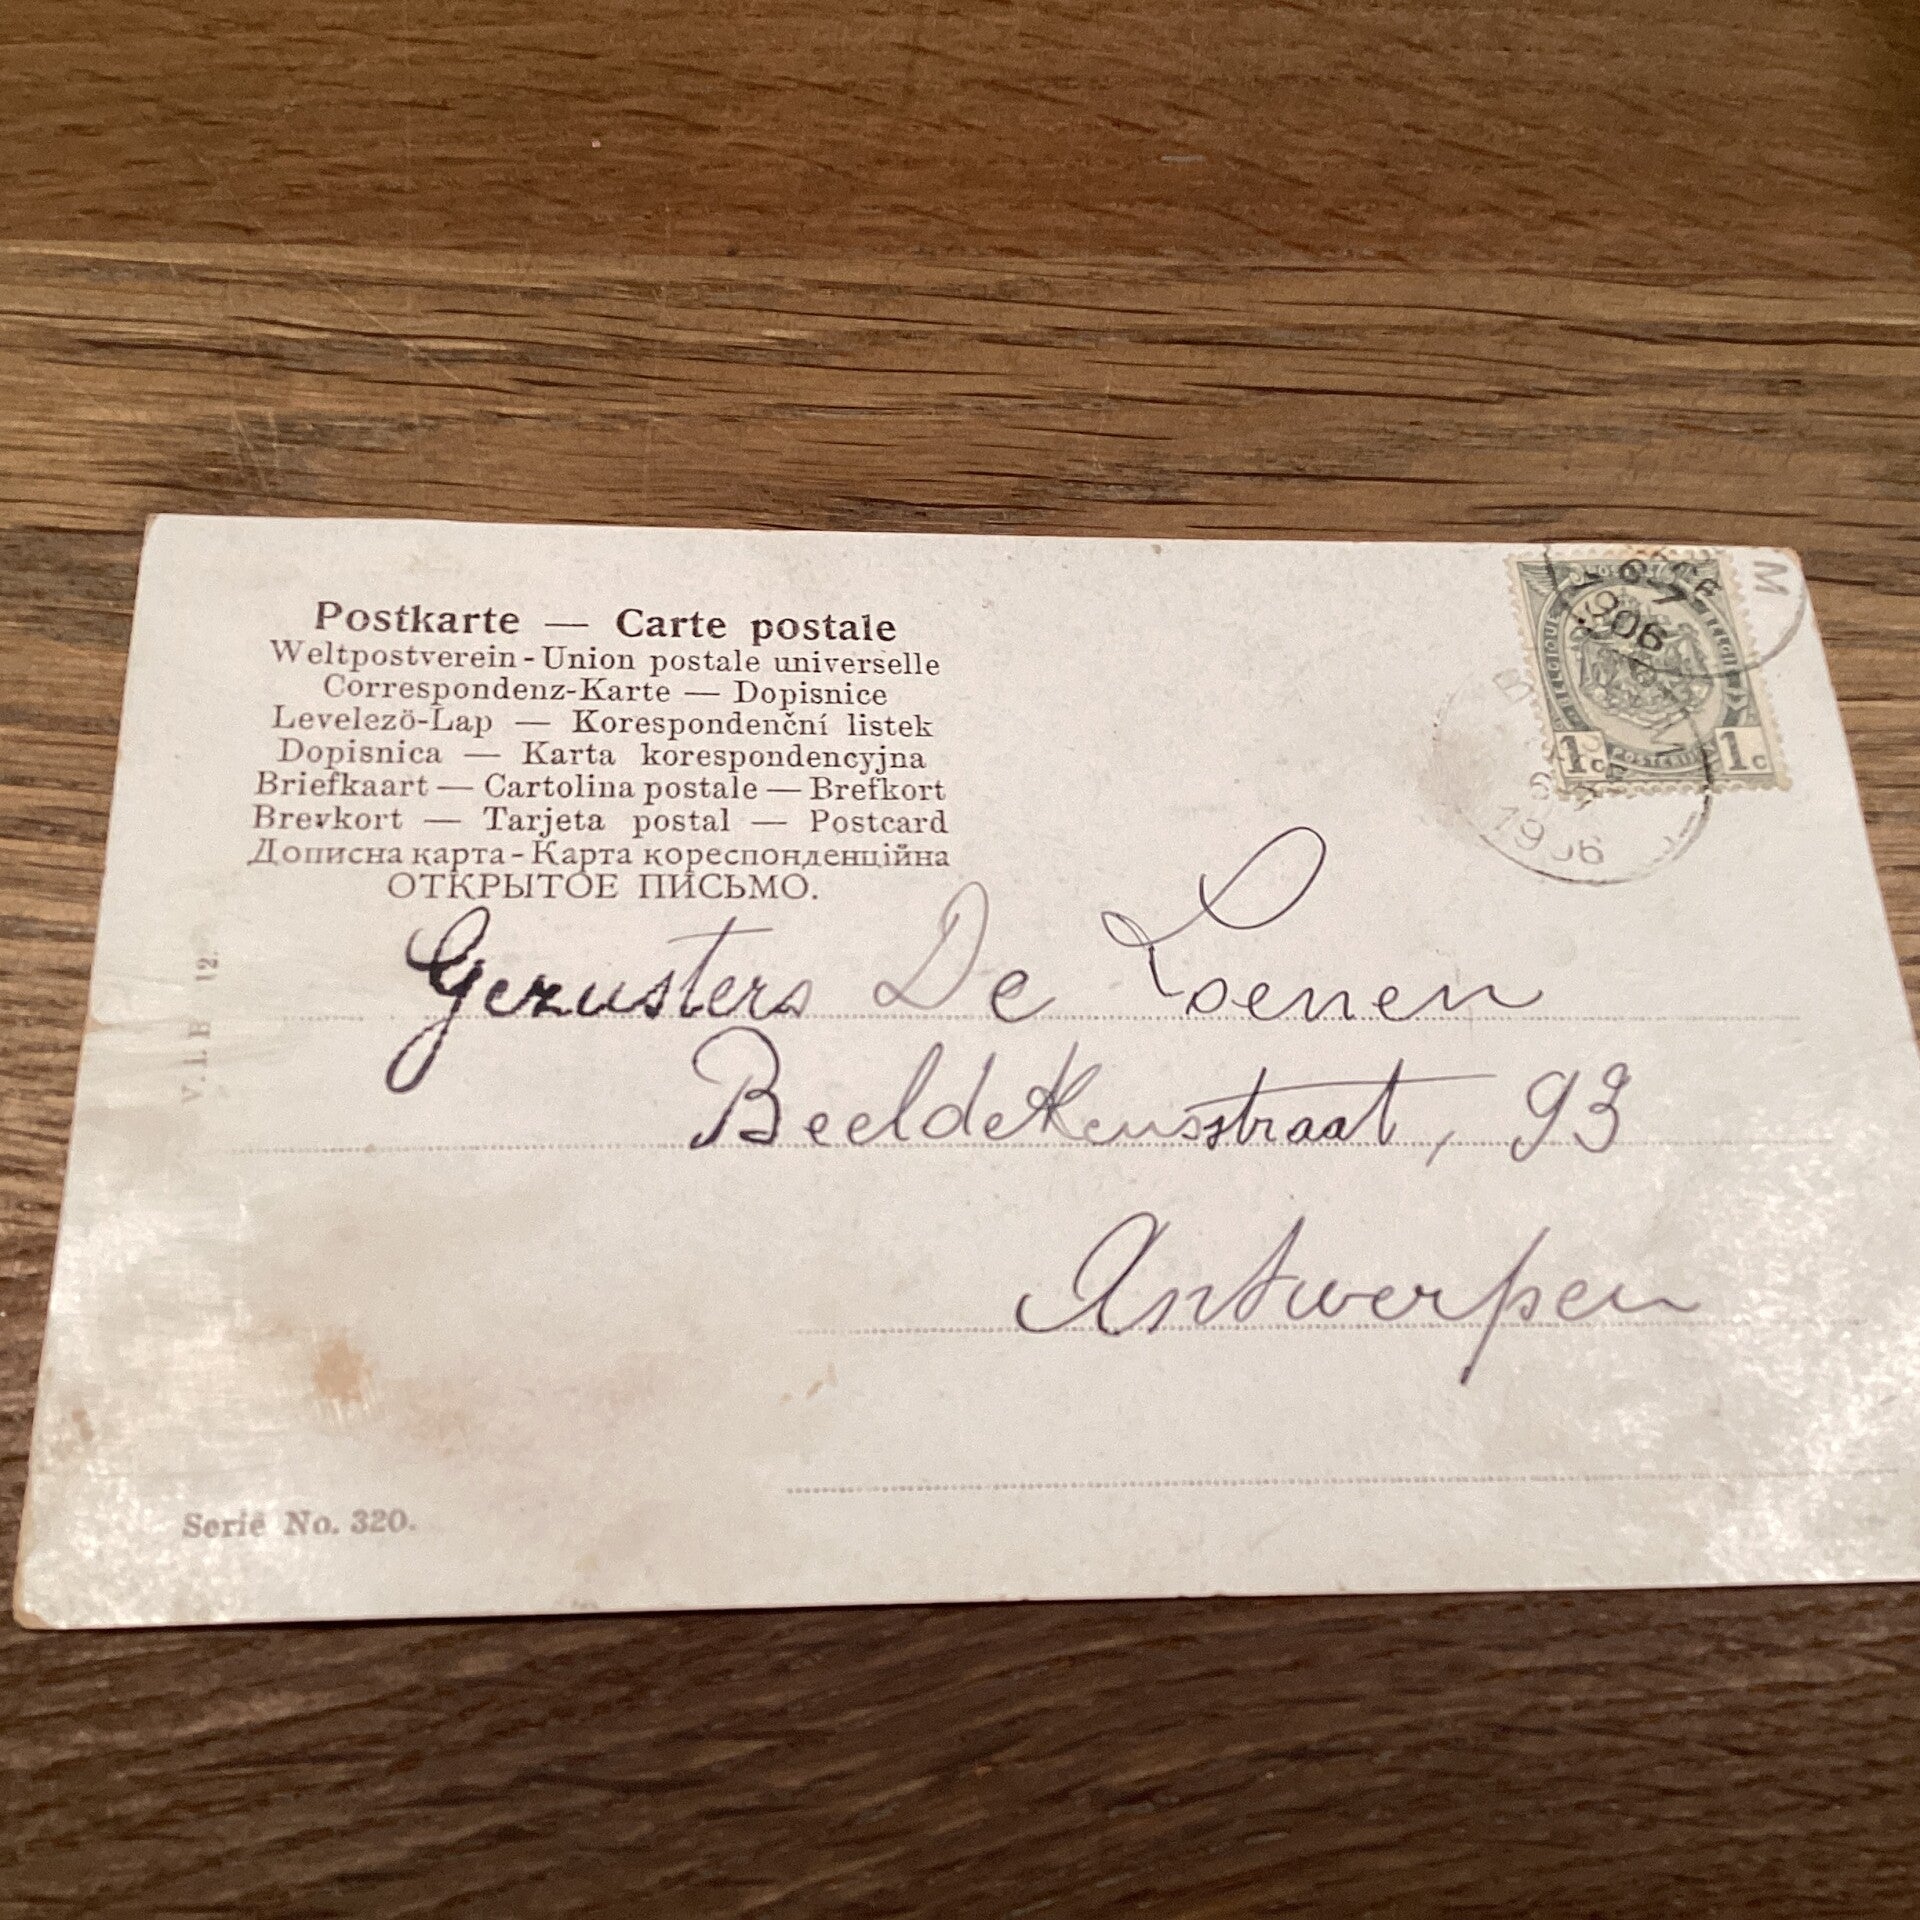 Postkarte — Carte postale
Weltpostverein - Union postale universelle
Correspondenz-Karte — Dopisnice
Levelező-Lap — Korespondenční listek
Dopisnica — Karta korespondencyjna
Briefkaart — Cartolina postale — Brefkort
Brevkort — Tarjeta postal — Postcard
Дописна карта - Карта кореспонденційна
ОТКРЫТОЕ ПИСЬМО.
1906
1c POSTERIJEN 1c
1906
Gezusters De Loenen
Beeldekensstraat, 93
Antwerpen
12.
Serie No. 320.